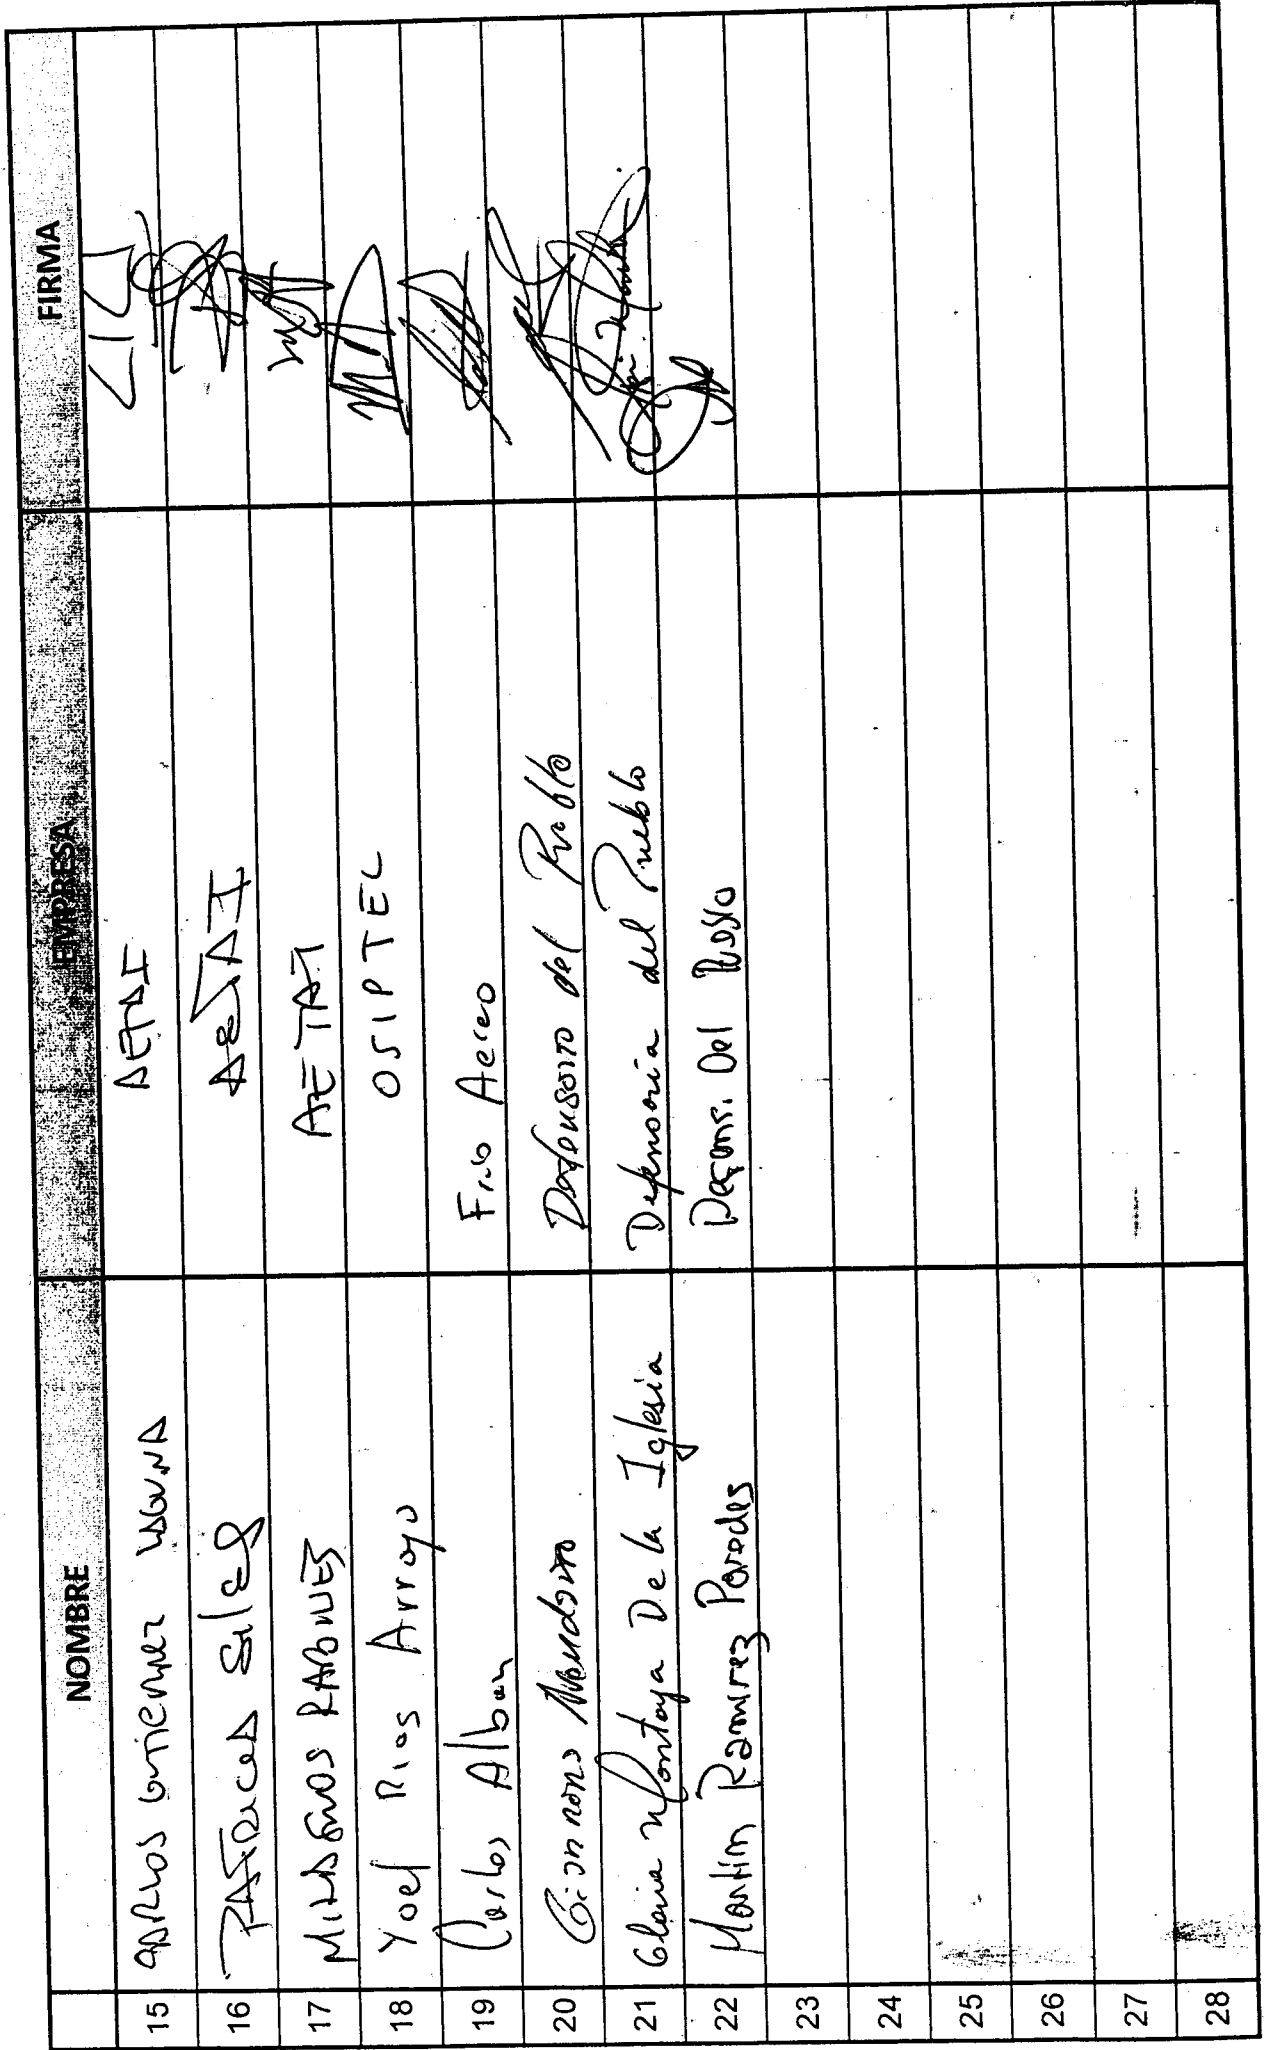 NOMBRE EMPRESA FIRMA
15 CARLOS GUTIERREZ LAGUNA AETAI
16 PATRICIA Siles AETAI
17 MILAGROS RABINES AETAI
18 Yoel Rios Arroyo OSIPTEL
19 Carlos Alban Frio Aereo
20 Defensoria del Pueblo
21 Gloria Montoya De la Iglesia Defensoria del Pueblo
22 Martin Ramirez Paredes Del
23
24
25
26
27
28